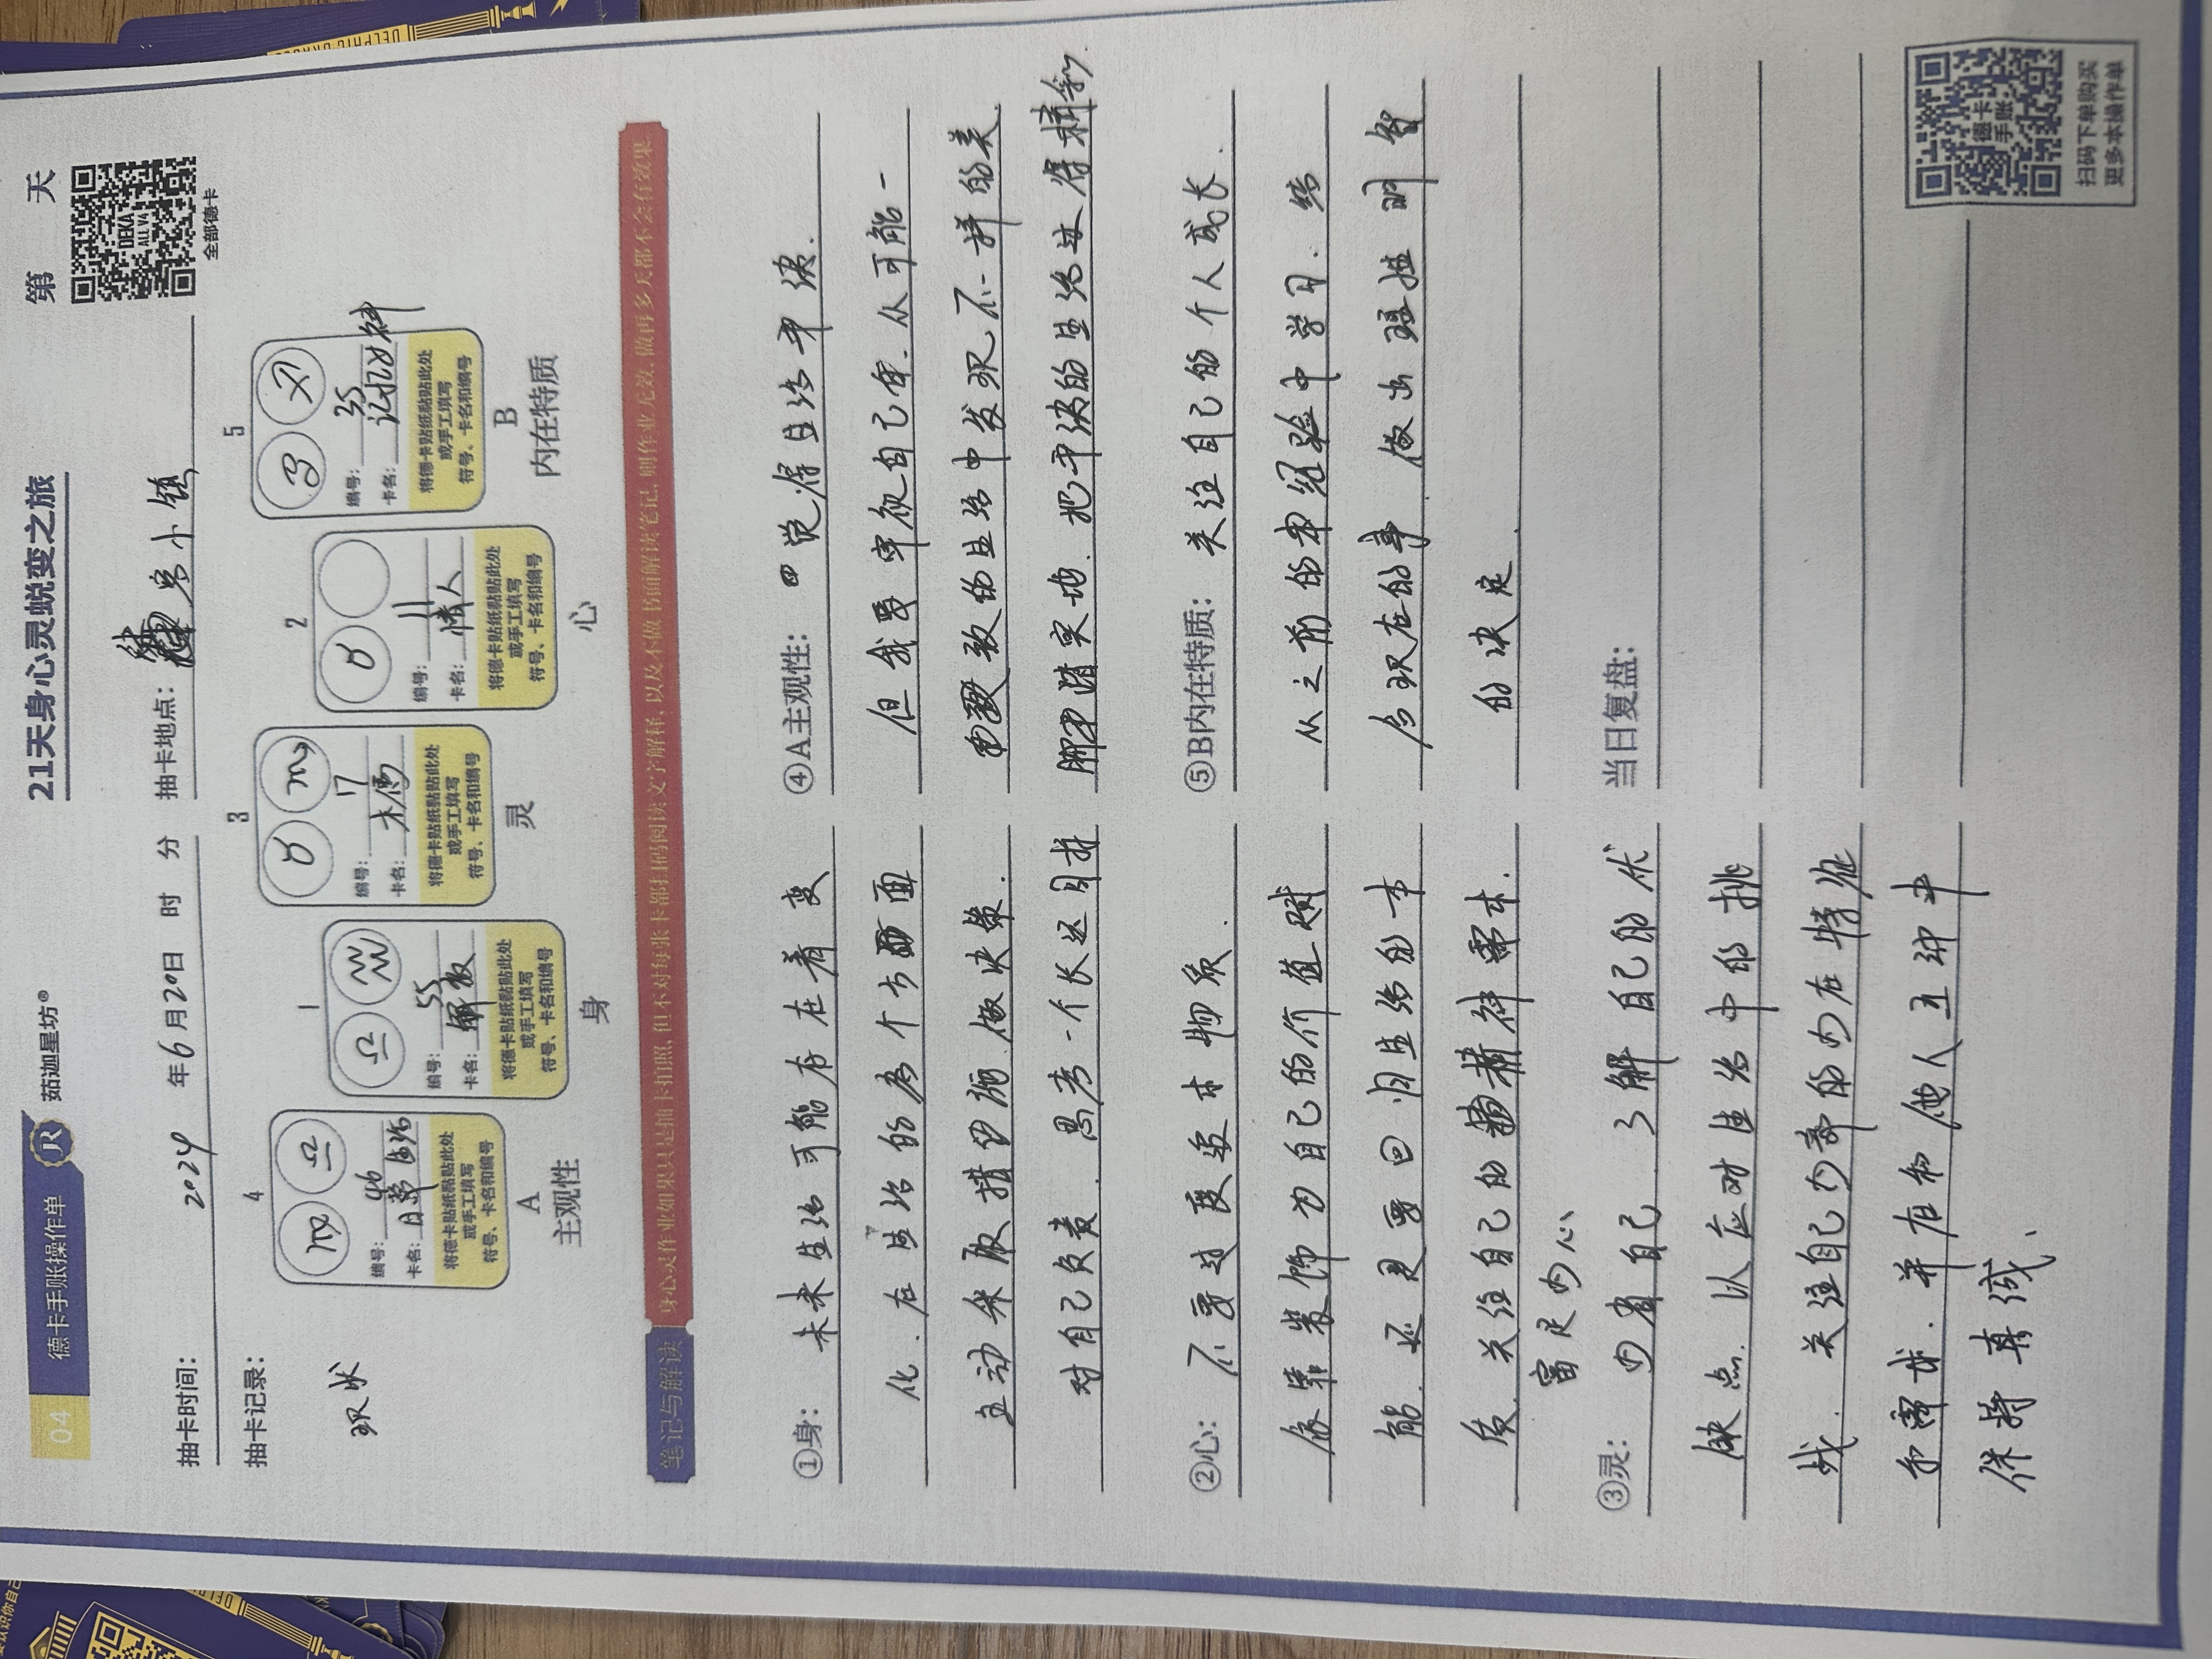 04 德卡手账操作单 JR 茹迦星坊® 21天身心灵蜕变之旅 第 天
抽卡时间: 2024 年6月20日 时 分 抽卡地点: 小镇
DEKA
ALL V4
全部德卡
抽卡记录:
现状
4
编号: 46
卡名: 日常生活
将德卡贴纸粘贴此处
或手工填写
符号、卡名和编号
A
主观性
1
编号: 55
卡名: 解散
将德卡贴纸粘贴此处
或手工填写
符号、卡名和编号
身
3
编号: 17
卡名: 木偶
将德卡贴纸粘贴此处
或手工填写
符号、卡名和编号
灵
2
编号: 11
卡名: 情人
将德卡贴纸粘贴此处
或手工填写
符号、卡名和编号
心
5
编号: 35
卡名: 记忆女神
将德卡贴纸粘贴此处
或手工填写
符号、卡名和编号
B
内在特质
笔记与解读 身心灵作业如果只是抽卡拍照,但不对每张卡都扫码阅读文字解释,以及不做书面解读笔记,则作业无效,做再多天都不会有效果
①身: 未来生活可能存在着变
化.在生活的各个方面
主动采取措施.做决策.
对自己负责.思考一个长远目标
②心: 不要过度追求物质.
依靠装饰为自己的价值赋
能.还是要回归生活的本
质.关注自己的精神需求.
富足内心
③灵: 内省自己.了解自己的优
缺点.以应对生活中的挑
战.关注自己内在的特征
和需求.并在和他人互动中
保持真诚、
④A主观性: 觉得生活平淡.
但我要审视自己年.从可能一
的生活中发现不一样的美
脚踏实地.把平淡的生活过得精彩
⑤B内在特质: 关注自己的个人成长.
从之前的事经验中学习.结
合现在的事.做出理性明智
的决定.
当日复盘:
德卡
手账
扫码下单购买
更多本操作单